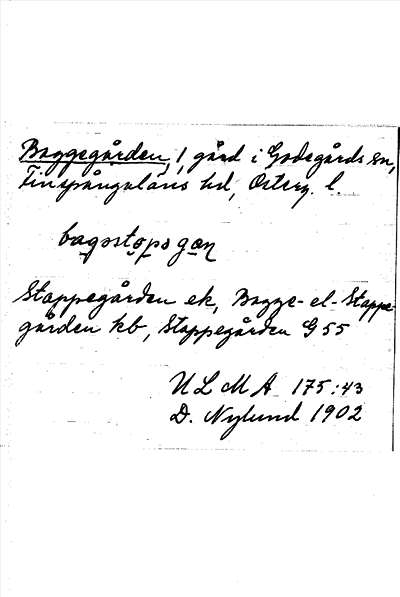 Baggegården, 1 gård i Godegårds sn,
Finspångaläns hd, Österg. l.
bagostopsgan
Stappegården ek, Bagge- el- Stappe-
gården kb, Stappegården G 55
ULMA 175:43
D. Nylund 1902